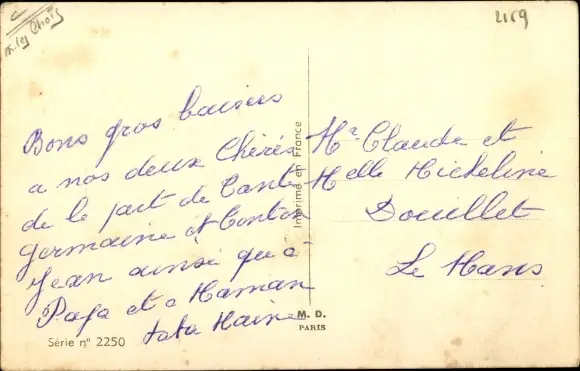 2169
Bons gros baisers
a nos deux Chéris
de le part de Tante
germaine et Tonton
Jean ainsi qu'a
Papa et a Maman
tata
Mr Claude et
Melle Micheline
Douillet
Le Mans
Imprimé en France
M. D.
PARIS
Série n° 2250